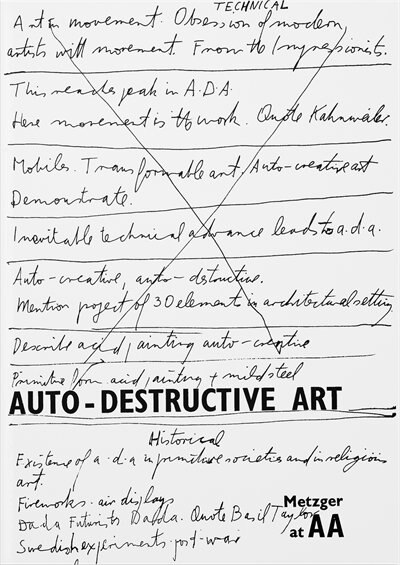 TECHNICAL
Art in movement. Obsession of modern
artists with movement. From the Impressionists.
This reaches peak in A.D.A.
Here movement is the work. Quote Kahnweiler.
Mobiles. Transformable art. Auto-creative art
Demonstrate.
Inevitable technical advance leads to a.d.a.
Auto-creative, auto-destructive.
Mention project of 30 element in architectural setting.
Describe acid painting auto-creative
Primitive form acid painting + mild steel
AUTO-DESTRUCTIVE ART
Historical
Existence of a.d.a in primitive societies and in religious
art.
Fireworks. air displays
Dada Futurists Dada. Quote Basil Taylor
Swedish experiments post-war
Metzger
at AA